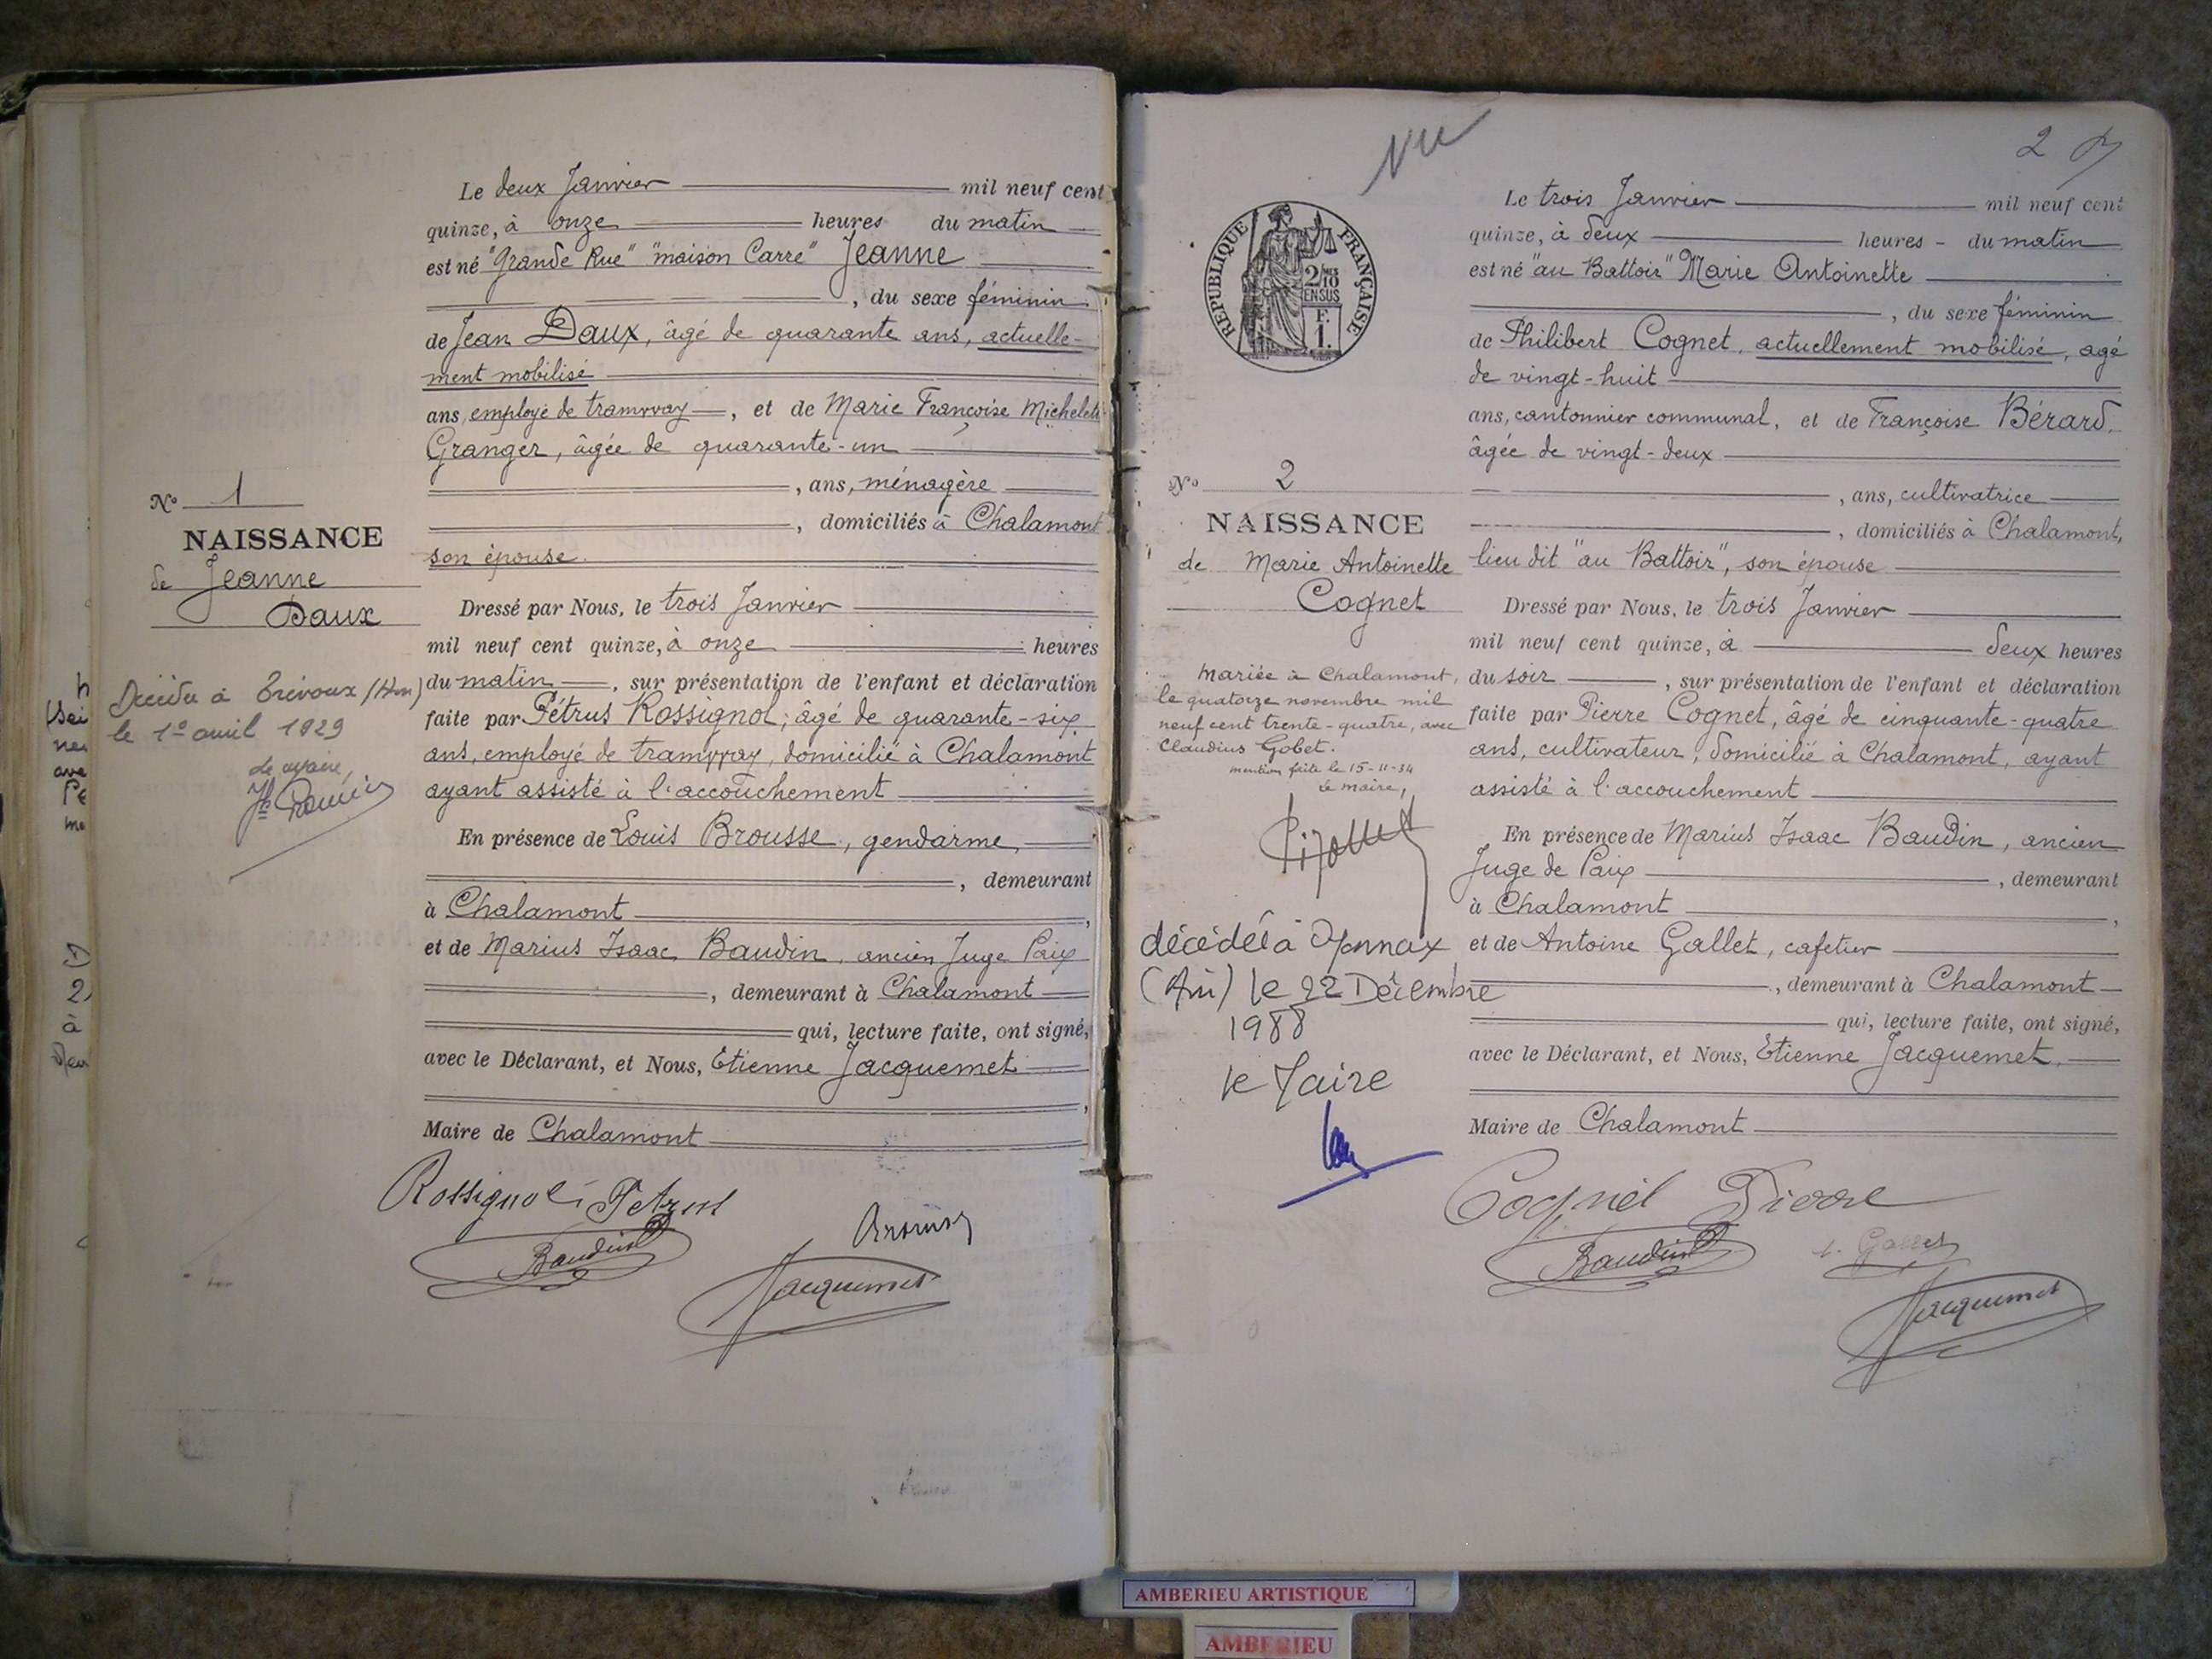 Le deux Janvier mil neuf cent
quinze, à onze heures du matin
est né "Grande Rue" "maison Carré" Jeanne
, du sexe féminin
de Jean Daux, âgé de quarante ans, actuelle-
ment mobilisé
ans, employé de tramway, et de Marie Françoise Michelete
Granger, âgée de quarante-un
, ans, ménagère
, domiciliés à Chalamont
son épouse.
Dressé par Nous, le trois Janvier
mil neuf cent quinze, à onze heures
du matin, sur présentation de l'enfant et déclaration
faite par Pétrus Rossignol; âgé de quarante-six
ans, employé de tramway, domicilié à Chalamont
ayant assisté à l'accouchement
En présence de Louis Brousse, gendarme,
, demeurant
à Chalamont,
et de Marius Isaac Baudin, ancien Juge Paix
, demeurant à Chalamont
qui, lecture faite, ont signé,
avec le Déclarant, et Nous, Etienne Jacquemet
,
Maire de Chalamont
Rossignol Petrus
Baudin
Brousse
Jacquemet
No 1
NAISSANCE
de Jeanne
Daux
Décédée à Trévoux
le 1er avril 1929
le maire,
VU
2
REPUBLIQUE FRANÇAISE
2/10
EN SUS
F.
1.
Le trois Janvier mil neuf cent
quinze, à deux heures - du matin
est né "au Battoir" Marie Antoinette
, du sexe féminin
de Philibert Cognet, actuellement mobilisé, agé
de vingt-huit
ans, cantonnier communal, et de Françoise Bérard,
âgée de vingt-deux
, ans, cultivatrice
, domiciliés à Chalamont,
lieu dit "au Battoir", son épouse
Dressé par Nous, le trois Janvier
mil neuf cent quinze, à deux heures
du soir, sur présentation de l'enfant et déclaration
faite par Pierre Cognet, âgé de cinquante-quatre
ans, cultivateur, domicilié à Chalamont, ayant
assisté à l'accouchement
En présence de Marius Isaac Baudin, ancien
Juge de Paix, demeurant
à Chalamont,
et de Antoine Gallet, cafetier
, demeurant à Chalamont
qui, lecture faite, ont signé,
avec le Déclarant, et Nous, Etienne Jacquemet,
Maire de Chalamont
Cognet Pierre
Baudin
Jacquemet
No 2
NAISSANCE
de Marie Antoinette
Cognet
Mariée à Chalamont,
le quatorze novembre mil
neuf cent trente-quatre, avec
Claudius Gobet.
mention faite le 15-11-34
Le maire,
décédée à Oyonnax
(Ain) le 22 Décembre
1988
le Maire
AMBERIEU ARTISTIQUE
AMBERIEU